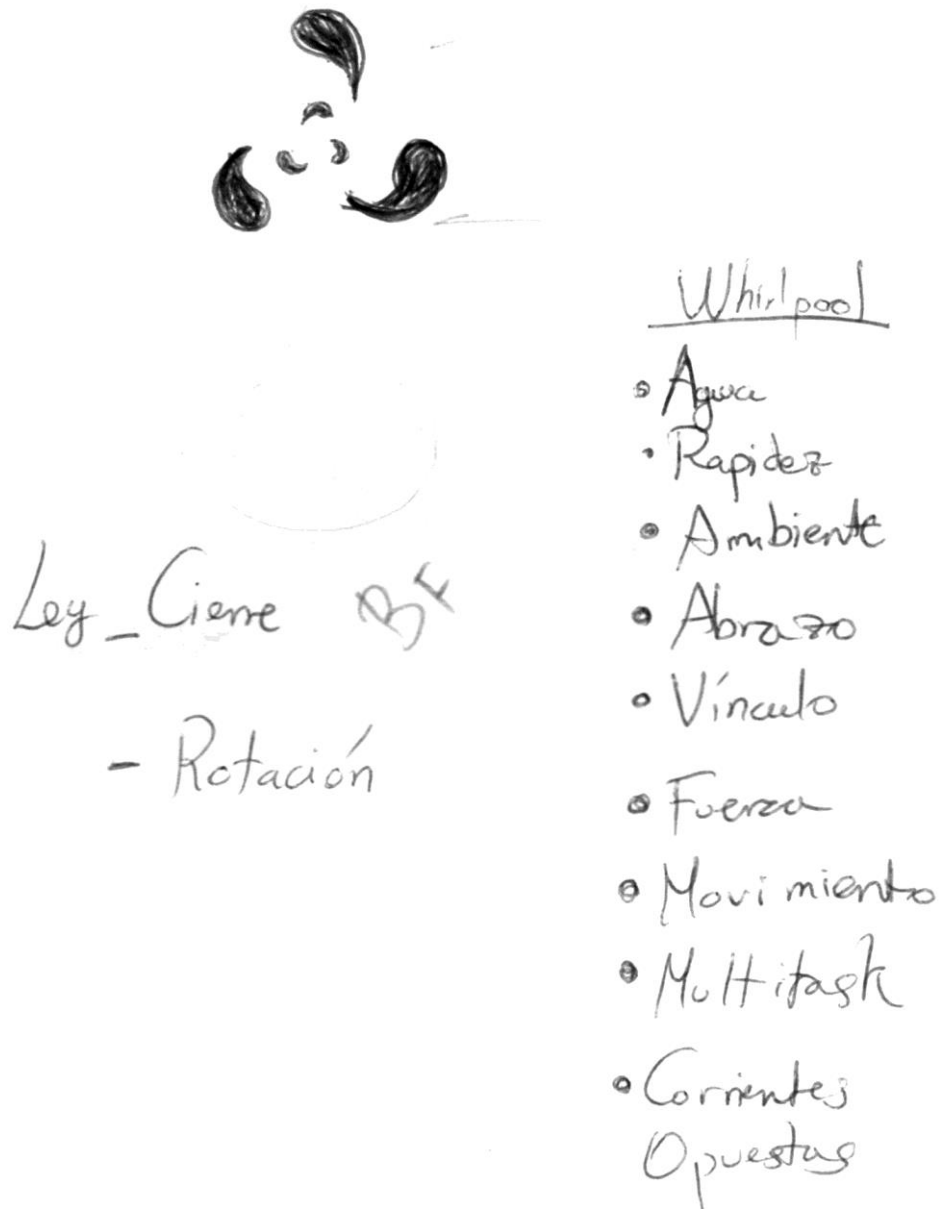 Whirlpool
• Agua
• Rapidez
• Ambiente
• Abrazo
• Vínculo
• Fuerza
• Movimiento
• Multitask
• Corrientes
Opuestas
Ley_Cierre BF
- Rotación